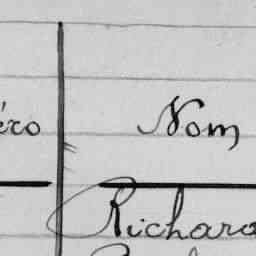 éro Nom
Richard